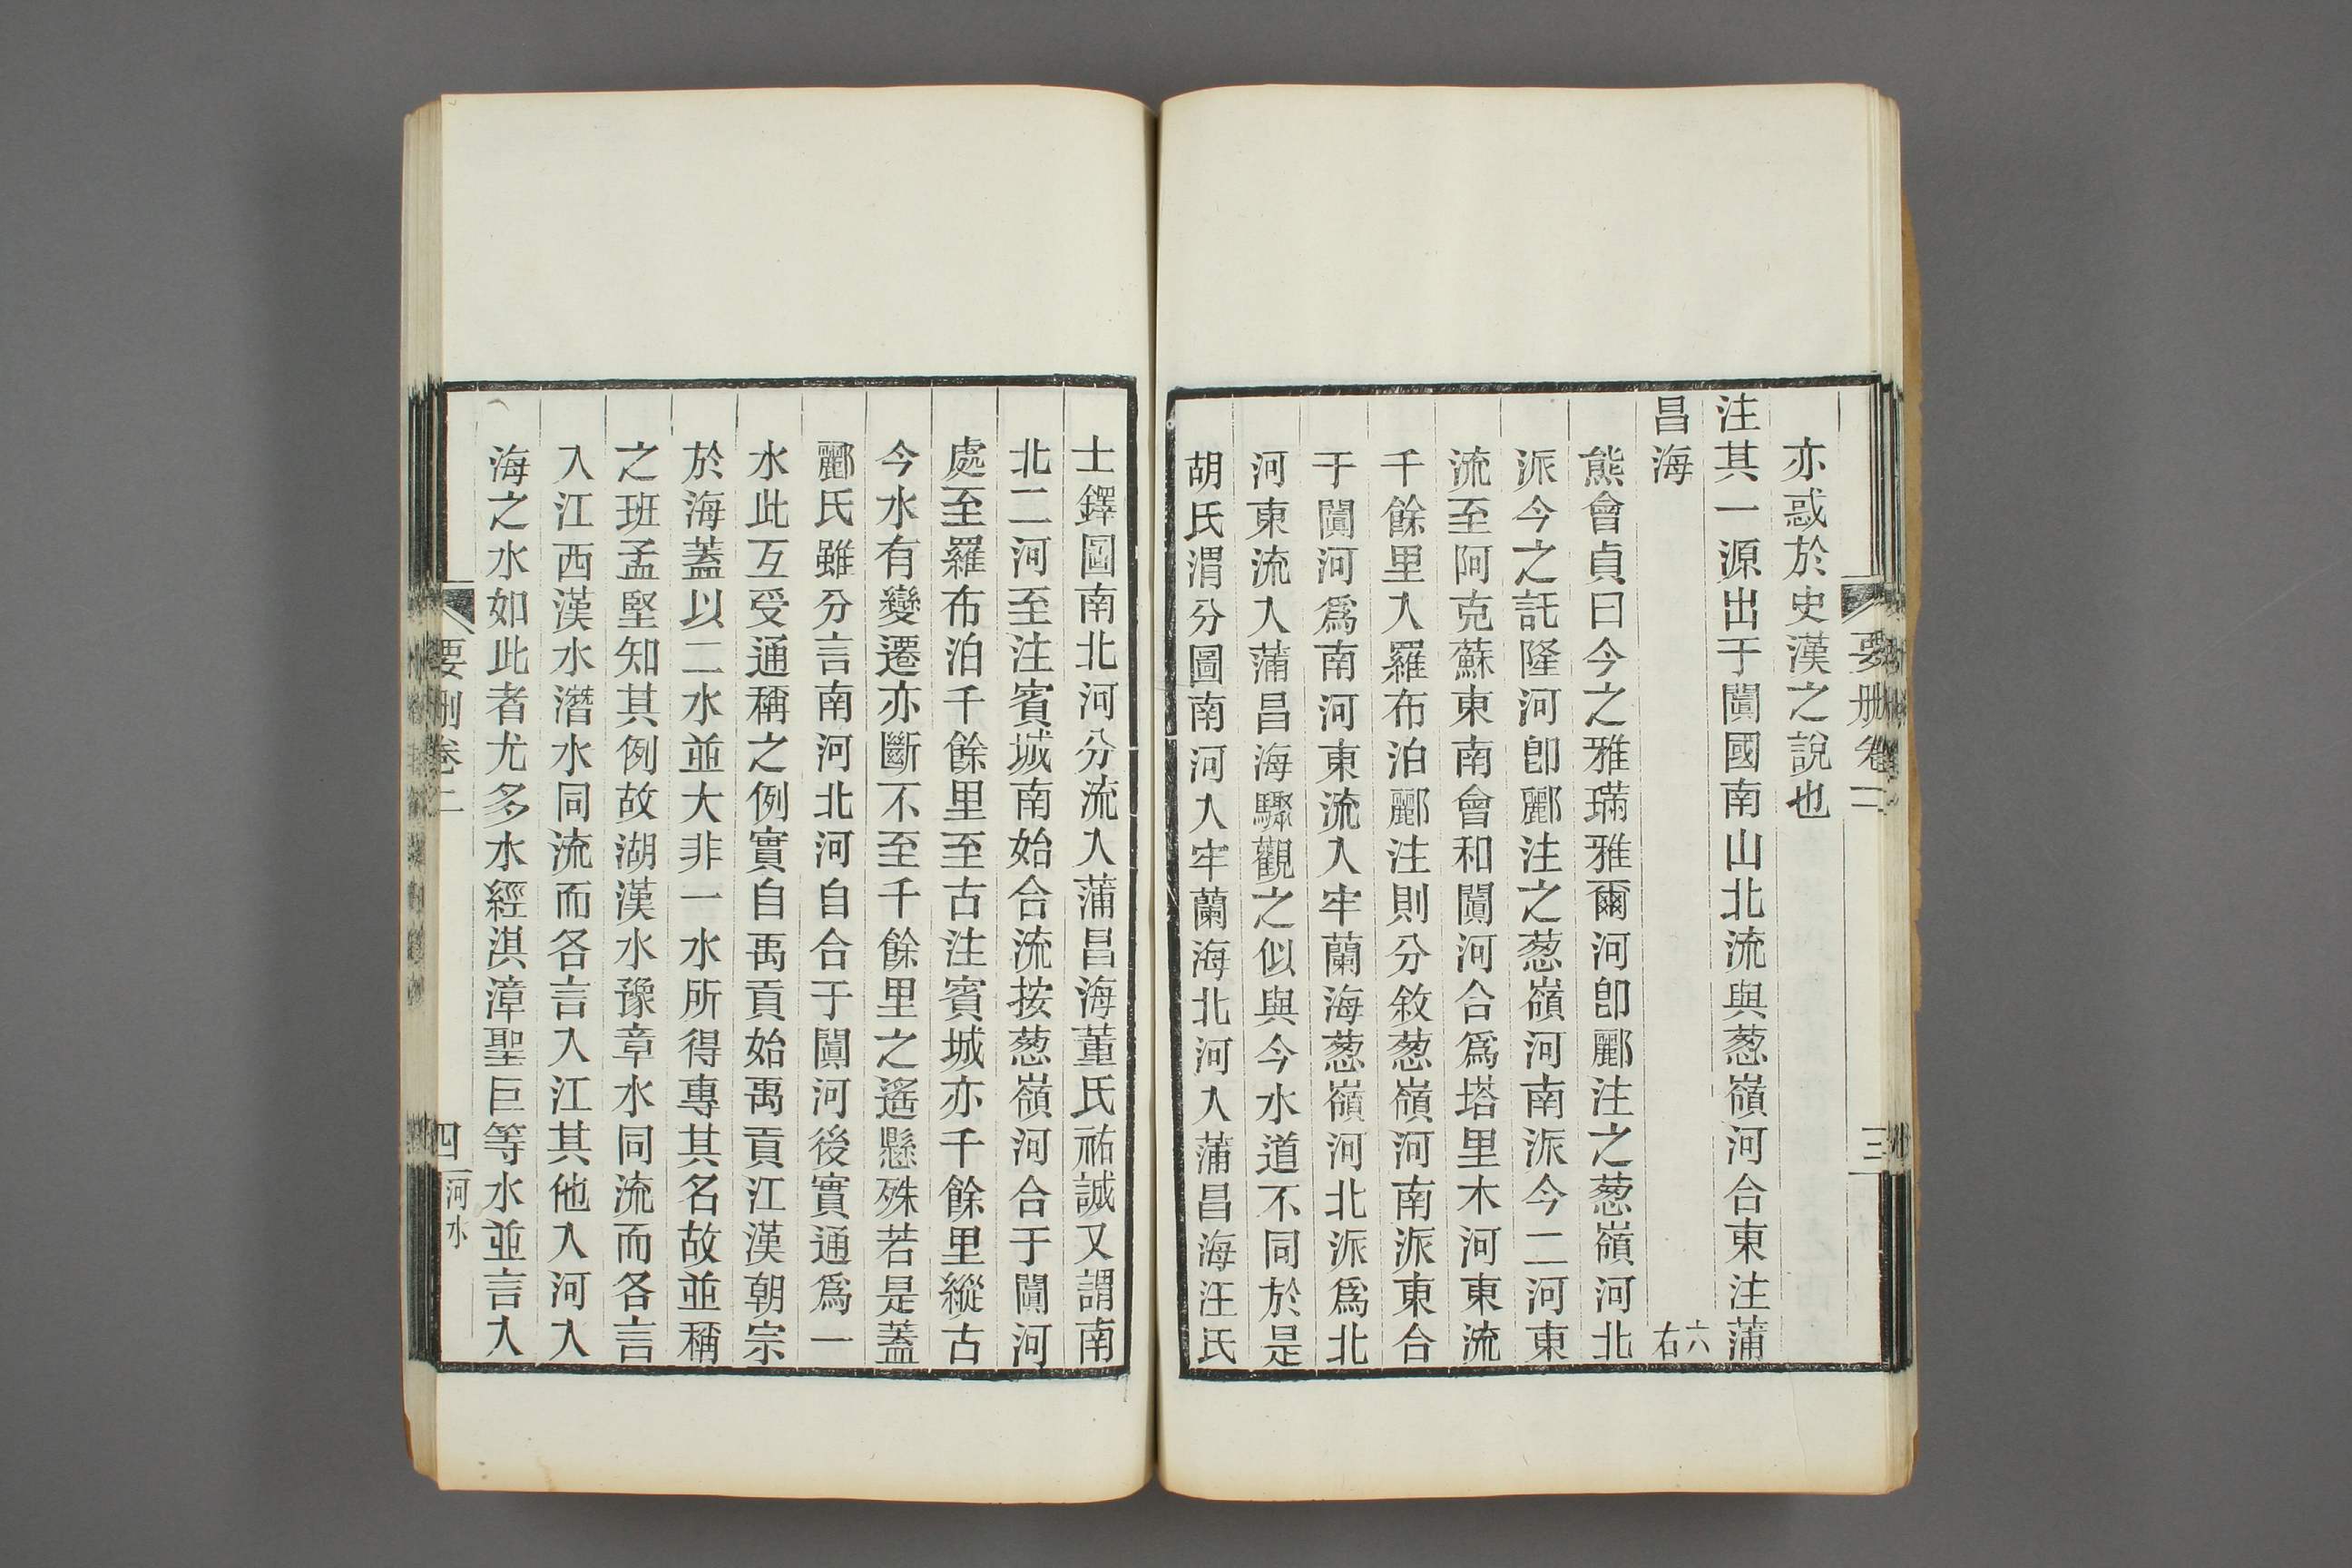 要刪卷二
三
亦惑於史漢之說也
注其一源出于闐國南山北流與葱嶺河合東注蒲
昌海
六
右
熊會貞曰今之雅璊雅爾河卽酈注之葱嶺河北
派今之託隆河卽酈注之葱嶺河南派今二河東
流至阿克蘇東南會和闐河合爲塔里木河東流
千餘里入羅布泊酈注則分敘葱嶺河南派東合
于闐河爲南河東流入牢蘭海葱嶺河北派爲北
河東流入蒲昌海驟觀之似與今水道不同於是
胡氏渭分圖南河入牢蘭海北河入蒲昌海汪氏
士鐸圖南北河分流入蒲昌海董氏祐誠又謂南
北二河至注賓城南始合流按葱嶺河合于闐河
處至羅布泊千餘里至古注賓城亦千餘里縱古
今水有變遷亦斷不至千餘里之遙懸殊若是蓋
酈氏雖分言南河北河自合于闐河後實通爲一
水此互受通稱之例實自禹貢始禹貢江漢朝宗
於海蓋以二水並大非一水所得專其名故並稱
之班孟堅知其例故湖漢水豫章水同流而各言
入江西漢水潛水同流而各言入江其他入河入
海之水如此者尤多水經淇漳聖巨等水並言入
要刪卷二
四
河水